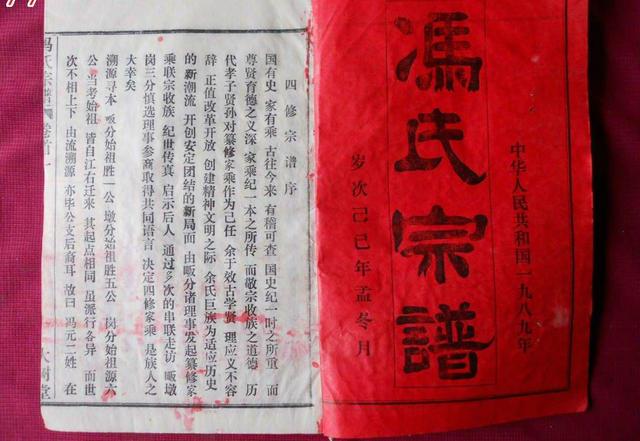 中华人民共和国一九八九年
馮氏宗譜
岁次己巳年孟冬月
四修宗谱序
国有史 家有乘 古往今来 有稽可查 国史纪一时之所重 而
尊贤育德之义深 家乘纪一本之所传 而敬宗收族之道德 历
代孝子贤孙对纂修家乘作为己任 余于效古学贤 理应义不容
辞 正值改革开放 创建精神文明之际 余氏巨族为适应历史
的新潮流 开创安定团结的新局面 由畈分诸理事发起纂修家
乘联宗收族 纪世传真 启示后人 通过多次的串联走访 畈墩
岗三分慎选理事参商取得共同语言 决定四修家乘 是族人之
大幸矣
溯源寻本 畈分始祖胜一公 墩分始祖胜五公 岗分始祖源六
公 当考始祖 皆自江右迁来 其起点相同 虽派行各异 而世
次不相上下 由流溯源 亦毕公支后裔耳 故曰 冯元二姓 在
冯氏宗谱 卷首 一 大树堂